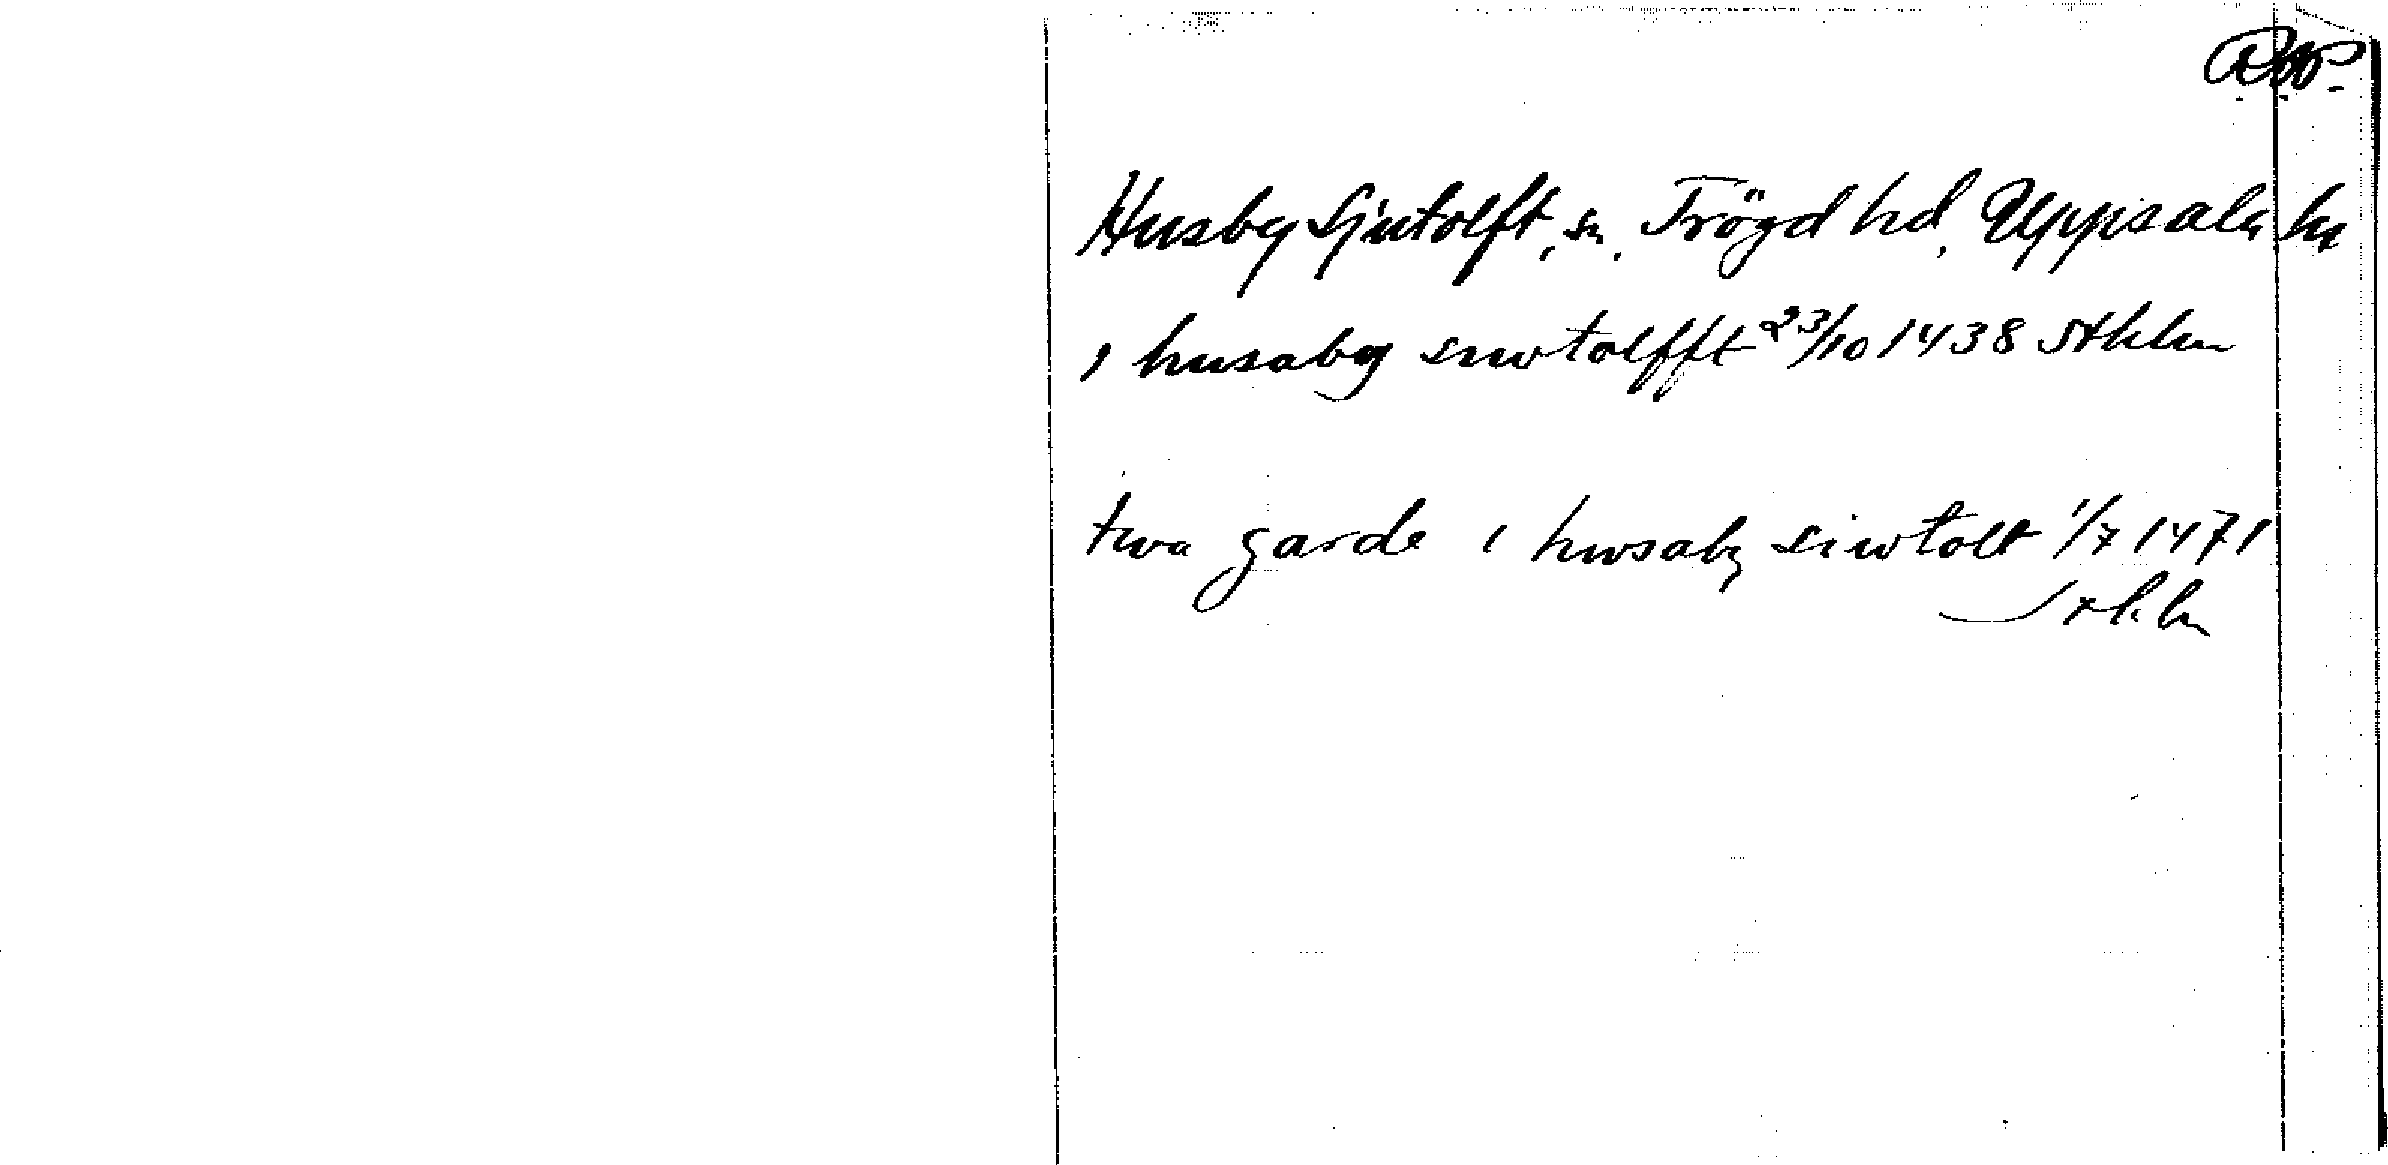 Husby Sjutolft, sn. Trögd hd, Uppsala
i husaby siwtolfft 23/10 1438 Sthlm
twa garde i hwsaby siwtolt 1/7 1471
Sthlm